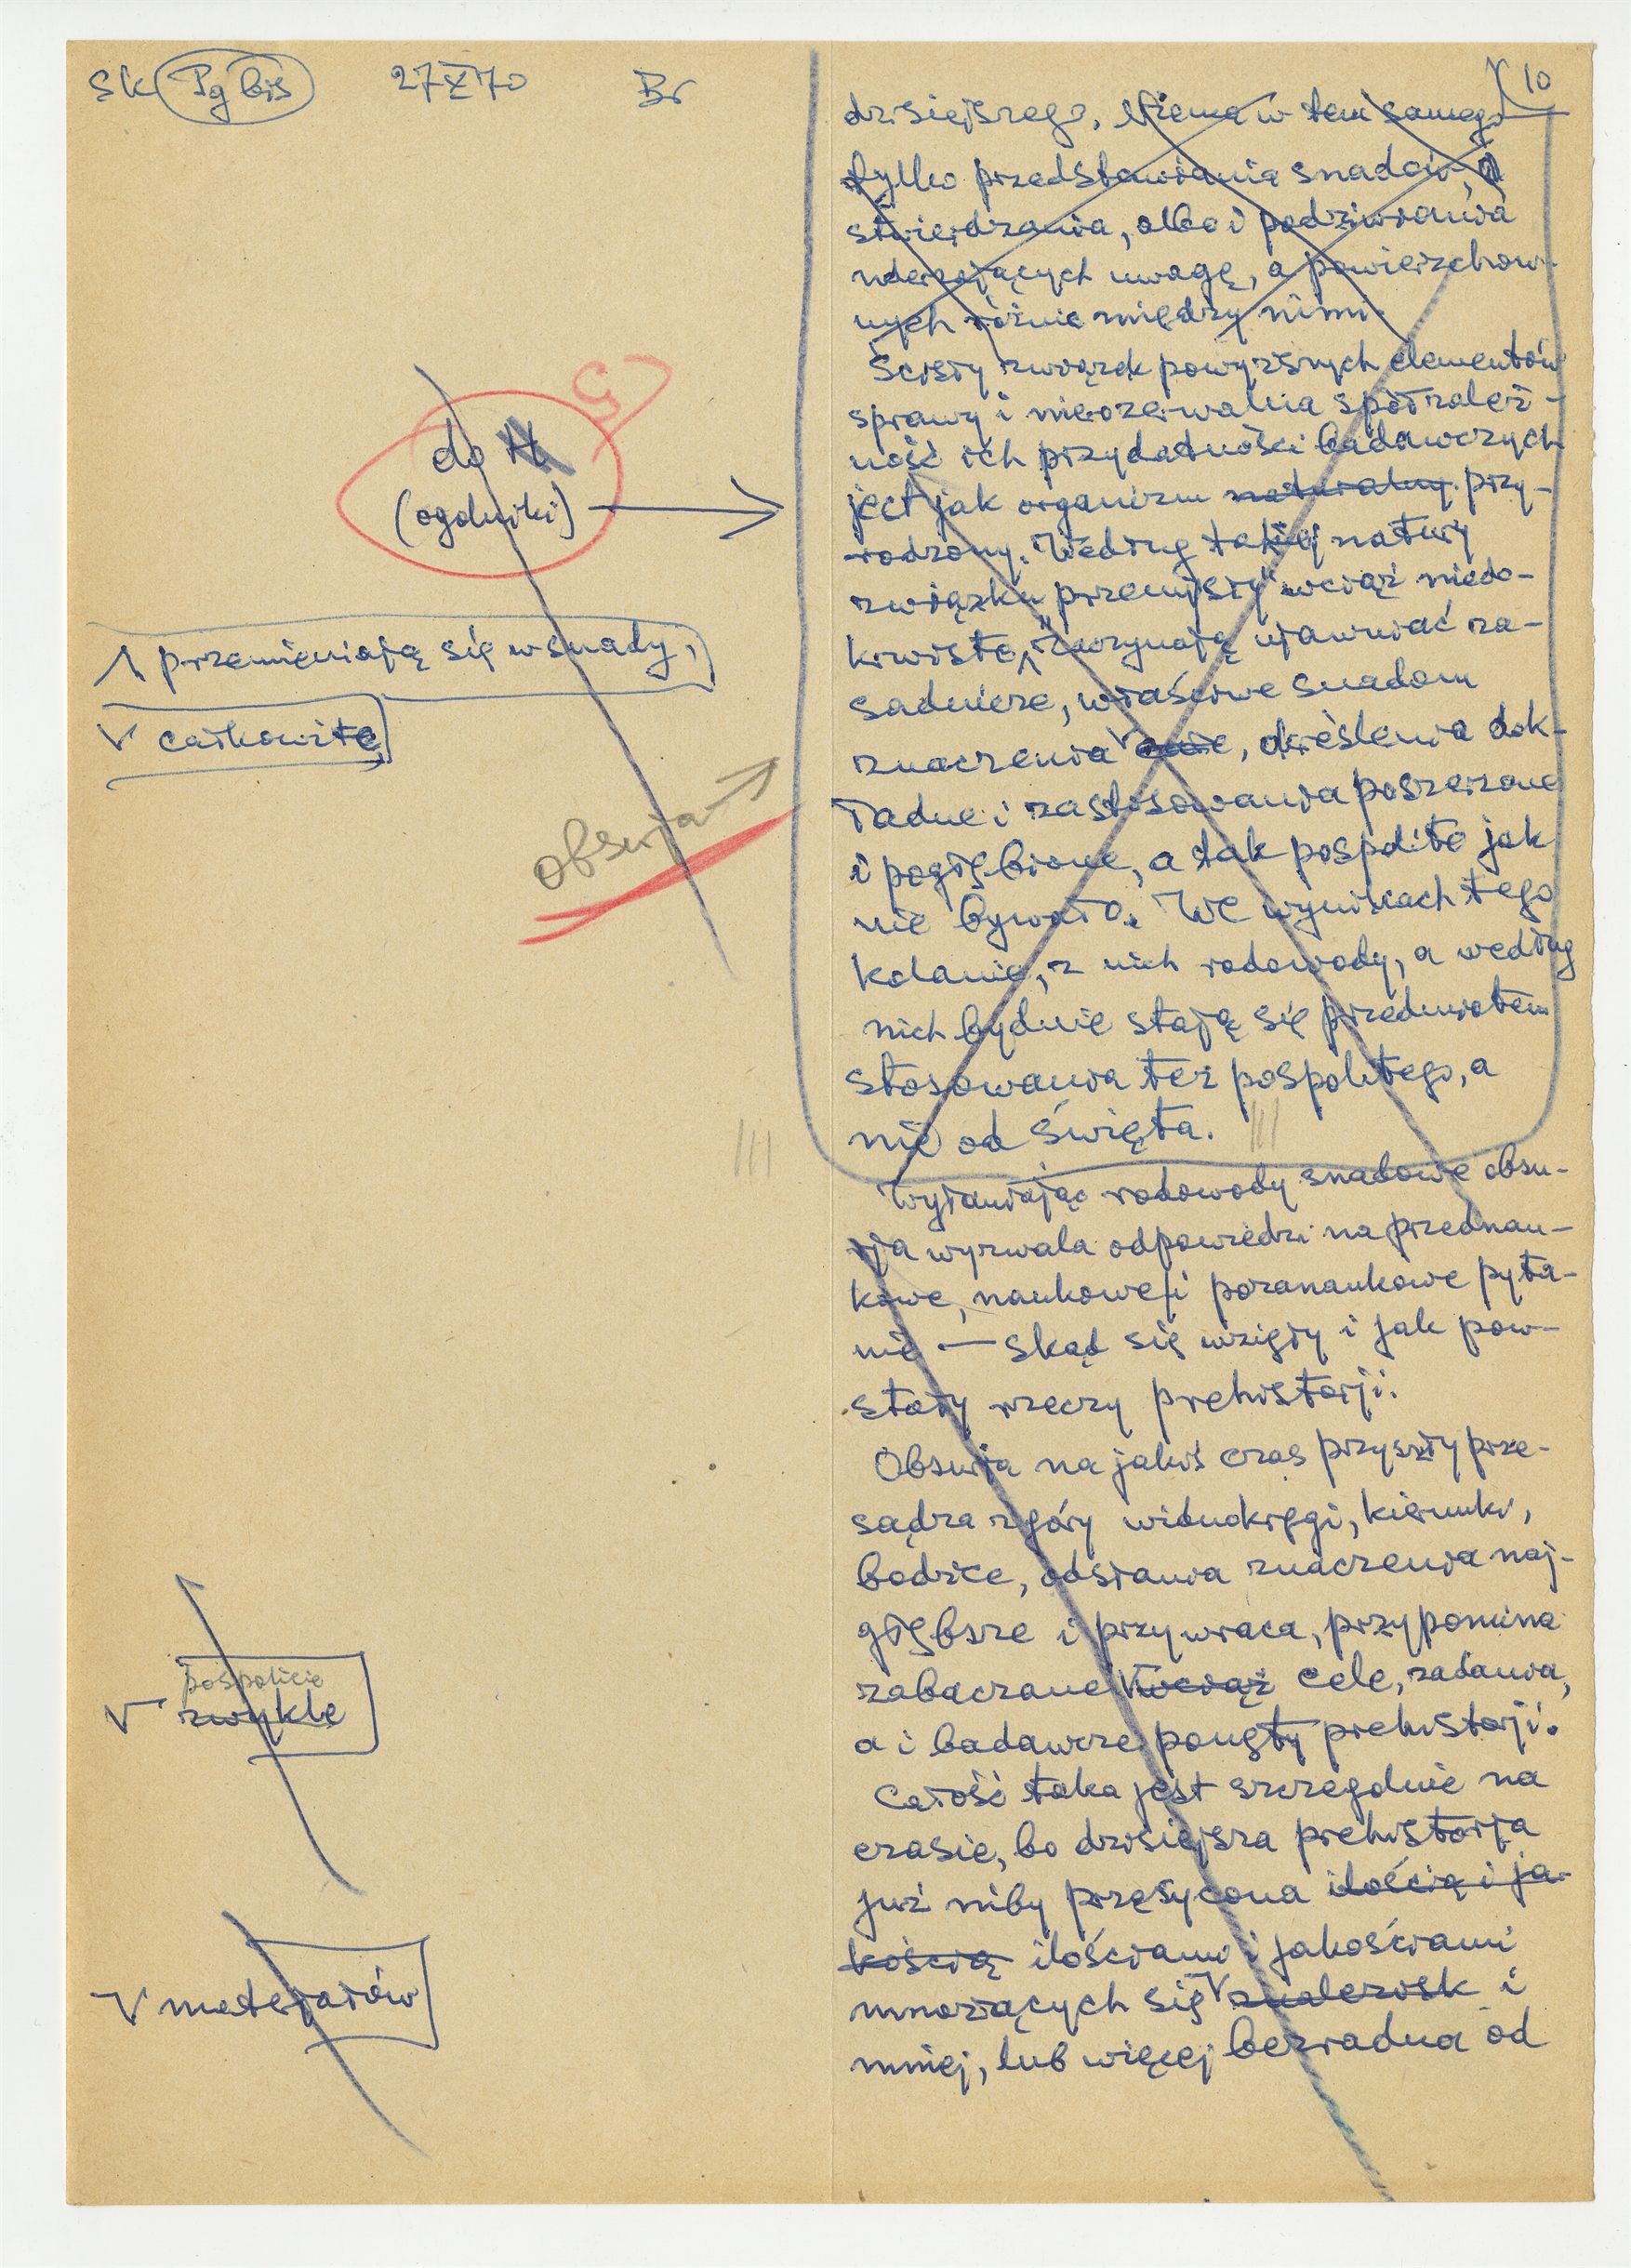 Sk Pg bis 27 X 70 Br
10
dzisiejszego. Niema w tem samego
tylko przedstawiania snadów, a
stwierdzania, albo i podziwiania
uderzających uwagę, a powierzchow-
nych różnic między nimi.
Ścisły związek powyższych elementów
sprawy i nierozerwalna spółzależ-
ność ich przydatności badawczych
jest jak organizm naturalny przy-
rodzony. Według takiej natury
związku przemysły "wciąż niedo-
krwiste", zaczynają ujawniać za-
sadnicze, właściwe snadom
znaczenia, określenia dok-
ładne i zastosowania poszerzone
i pogłębione, a tak pospolite jak
nie bywało. We wynikach tego
kolanie, z nich rodowody, a według
nich bydnie stają się przedmiotem
stosowania też pospolitego, a
nie od święta.
Wyławiając rodowody snadowe obsu-
ja wyzwala odpowiedzi na przednau-
kowe, naukowe i pozanaukowe pyta-
nie — skąd się wzięły i jak pow-
stały rzeczy prehistorji.
Obsuja na jakiś czas przyszły prze-
sądza zgóry widnokręgi, kierunki,
bodźce, odsłania znaczenia naj-
głębsze i przywraca, przypomina
zabaczane V wciąż cele, zadania,
a i badawcze ponęty prehistorji.
Całość taka jest szczególnie na
czasie, bo dzisiejsza prehistorja
już niby przesycona ilością i ja-
kością ilościami i jakościami
mnożących się V znalezisk i
mniej, lub więcej bezradna od
5
do H
(ogólniki)
Λ przemieniają się w snady,
V całkowite
obsuja
V pospolicie
zwykle
V materjałów